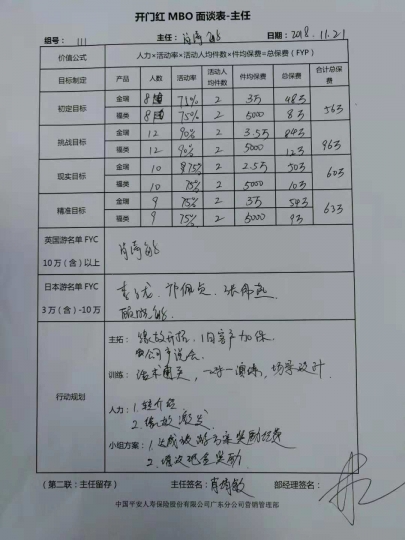 开门红 MBO 面谈表-主任
组号： 111 主任： 日期： 2018.11.21
价值公式 人力×活动率×活动人均件数×件均保费=总保费（FYP）
目标制定 产品 人数 活动率 活动人均件数 件均保费 总保费 合计总保费
初定目标 金瑞 8 75% 2 3万 48万 56万
福类 8 75% 2 5000 8万
挑战目标 金瑞 12 90% 2 3.5万 84万 96万
福类 12 90% 2 5000 12万
现实目标 金瑞 10 75% 2 2.5万 50万 60万
福类 10 75% 2 5000 10万
精准目标 金瑞 9 75% 2 3万 54万 63万
福类 9 75% 2 5000 9万
英国游名单 FYC
10 万（含）以上
日本游名单 FYC
3 万（含）-10万
行动规划
主拓： 缘故开拓，旧客户加保
公司产说会
训练： 话术通关，一对一演练，场景设计
人力： 1.转介绍
2.缘故
小组方案： 1.达成 奖励
2. 现金奖励
（第二联：主任留存） 主任签名： 部经理签名：
中国平安人寿保险股份有限公司广东分公司营销管理部